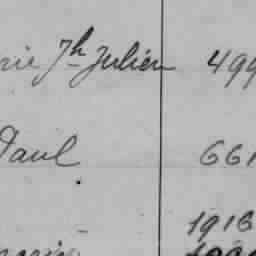 rie Jh Julien 499
Paul 661
1916